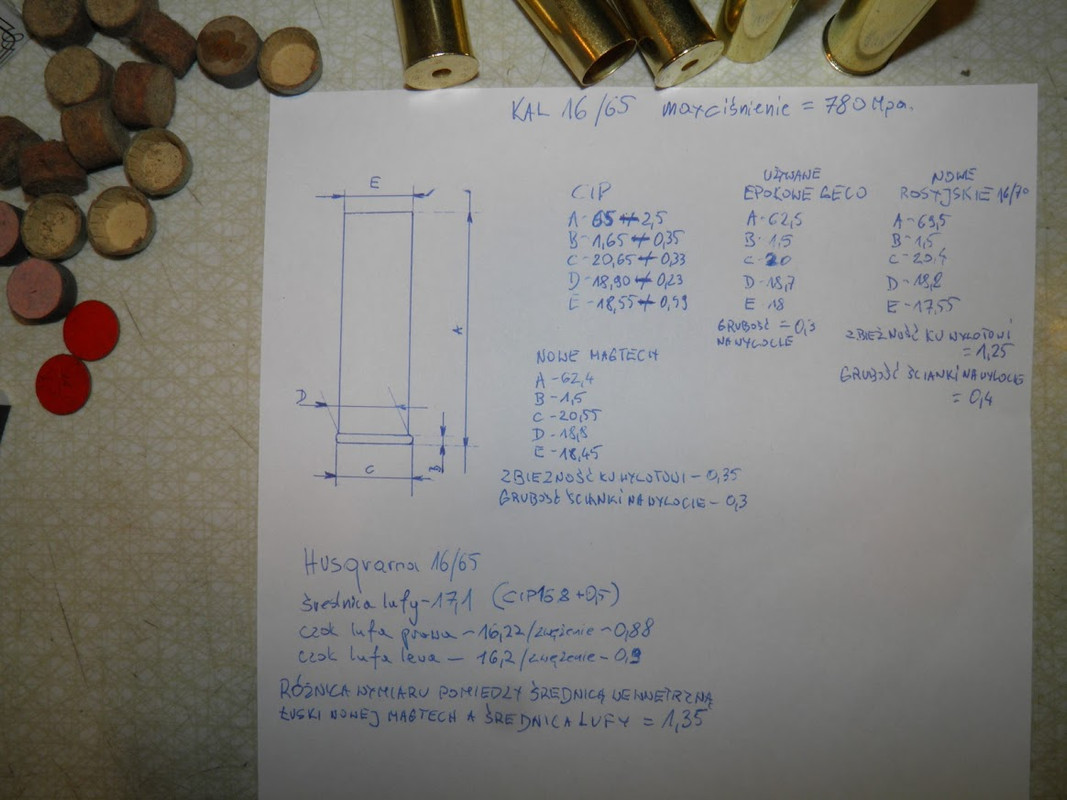 KAL 16/65 max ciśnienie = 780 Mpa.
E
A
D
C
B
CIP
A- 65 +/- 2,5
B- 1,65 +/- 0,35
C- 20,65 +/- 0,33
D- 18,90 +/- 0,23
E- 18,55 +/- 0,59
UŻYWANE
EPOKOWE GECO
A- 62,5
B- 1,5
C- 20
D- 18,7
E 18
GRUBOŚĆ = 0,3
NA WYLOCIE
NOWE
ROSYJSKIE 16/70
A- 69,5
B- 1,5
C- 20,4
D- 18,8
E- 17,55
ZBIEŻNOŚĆ KU WYLOTOWI
= 1,25
GRUBOŚĆ ŚCIANKI NA WYLOCIE
= 0,4
NOWE MAGTECH
A- 62,4
B- 1,5
C- 20,55
D- 18,8
E- 18,45
ZBIEŻNOŚĆ KU WYLOTOWI - 0,35
GRUBOŚĆ ŚCIANKI NA WYLOCIE - 0,3
Husqvarna 16/65
średnica lufy - 17,1 (CIP 16.8 +0,5)
czok lufa prawa - 16,22/zwężenie - 0,88
czok lufa lewa - 16,2/zwężenie - 0,9
RÓŻNICA WYMIARU POMIEDZY ŚREDNICĄ WEWNETRZNĄ
ŁUSKI NOWEJ MAGTECH A ŚREDNICA LUFY = 1,35